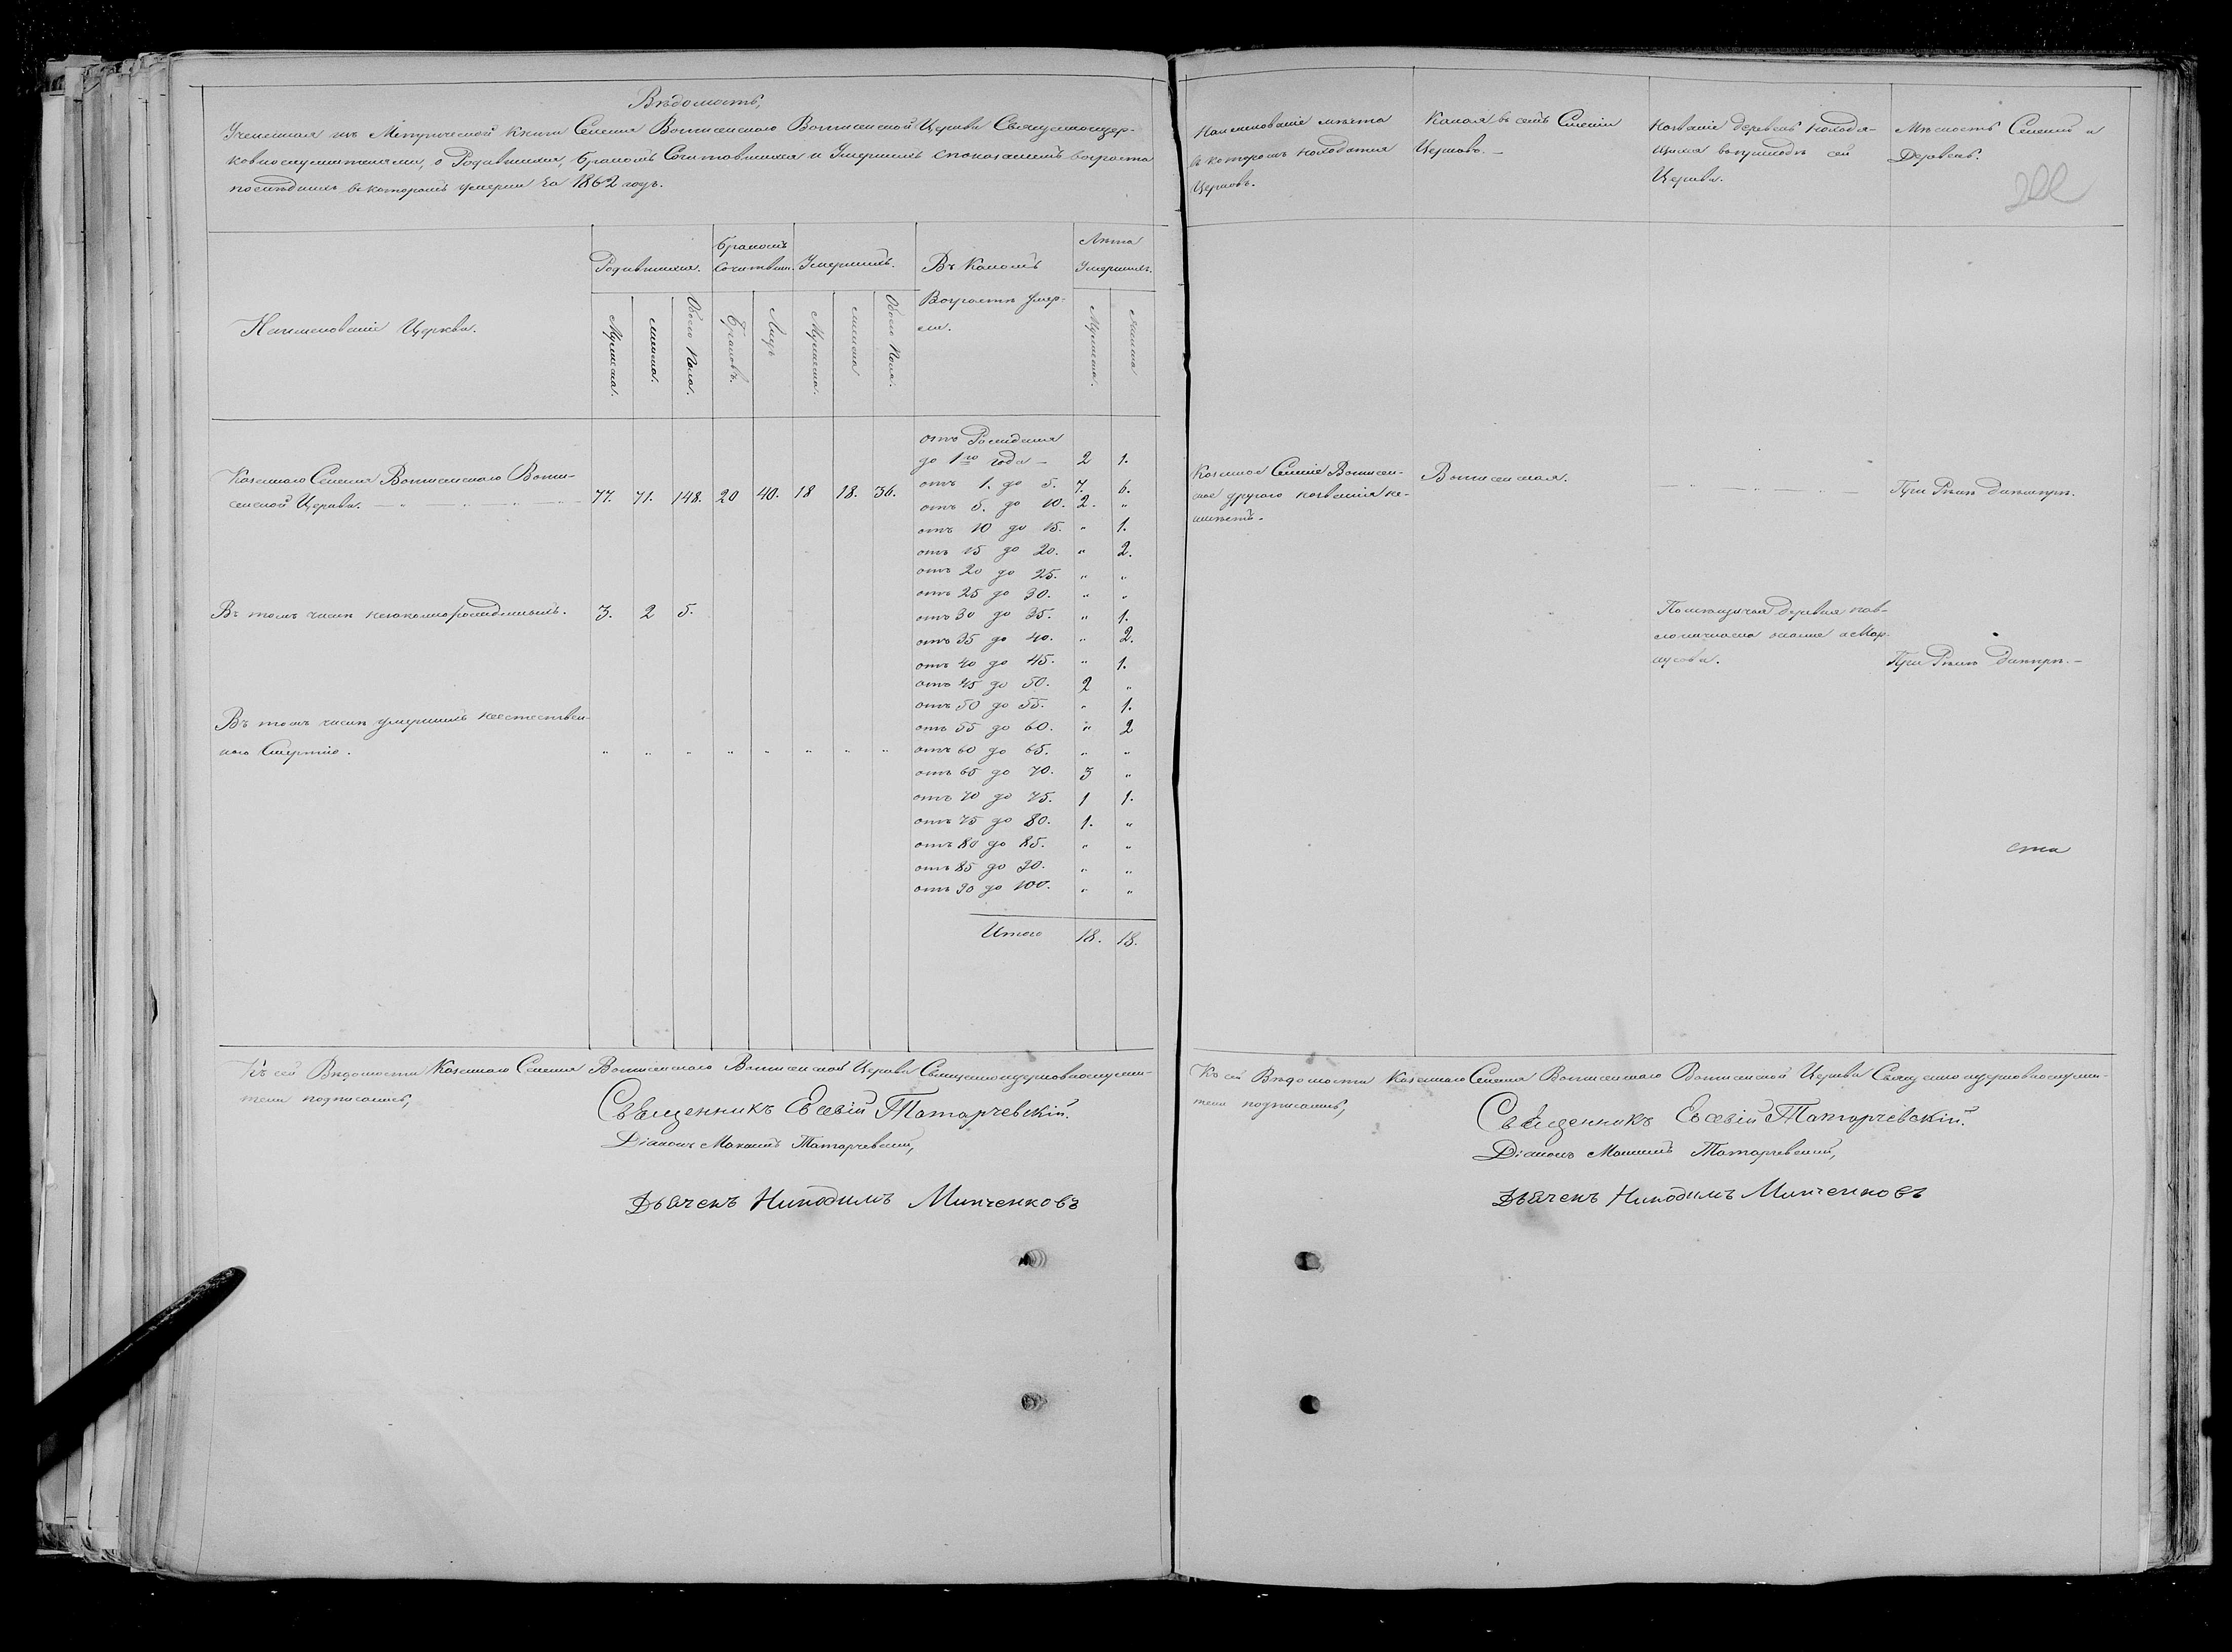 Вѣдомость,
Учиненная изъ Метрической книги Селенія Вознесенского Вознесенской Церкви Священноцер-
ковнослужителями, о Родившихся, бракомъ Сочитавшихся и Умершихъ спопоказаніемъ возраста
послѣднихъ вкоторомъ умерли за 1862 годъ.
Наименованіе Церкви.
Родившихся.
Бракомъ
Сочитавши.
Умершихъ.
Въ Какомъ
Возрасте умер-
ли.
Лѣта
Умершихъ.
Мужеска.
женска.
Обоего Пола.
Браковъ.
Лицъ
Мужеска.
женска
Обоего Пола.
Мужеска.
женска
Казеннаго Селенія Вознесенского Возне-
сенской Церкви. 77. 71. 148. 20 40. 18 18. 36.
Въ томъ числѣ незаконнорожденныхъ. 3. 2 5.
Въ томъ числѣ умершихъ неестествен-
ною Смертію. " " " " " " " "
отъ Рожденія
до 1го года — 2 1.
отъ 1. до 5. 7. 6.
отъ 5. до 10. 2. "
отъ 10 до 15. " 1.
отъ 15 до 20. " 2.
отъ 20 до 25. " "
отъ 25 до 30. " "
отъ 30 до 35. " 1.
отъ 35 до 40. " 2.
отъ 40 до 45. " 1.
отъ 45 до 50. 2 "
отъ 50 до 55. " 1.
отъ 55 до 60. " 2
отъ 60 до 65. " "
отъ 65 до 70. 3 "
отъ 70 до 75. 1 1.
отъ 75 до 80. 1. "
отъ 80 до 85. " "
отъ 85 до 90. " "
отъ 90 до 100. " "
Итого 18. 18.
Къ сей Вѣдомости Казеннаго Селенія Вознесенского Вознесенской Церкви Священноцерковнослужи-
тели подписались,
Священникъ Евсевій Татарчевскій.
Діаконъ Татарчевскій,
Дьячекъ Никодимъ Минченковъ
Наименованіе мѣста
вкоторомъ находится
Церковь.
Какая въ семъ Селеніи
Церковь. —
Названіе деревень находя-
щихся вприходѣ сей
Церкви.
Мѣсность Селеній и
Деревень.
Казенное Селеніе Вознесен-
ское другого названія не-
имѣетъ.
Вознесенская.
При Рѣкѣ Днѣпрѣ.
Помѣщичая деревня
При Рѣкѣ Днѣпрѣ. —
ста
Къ сей Вѣдомости Казеннаго Селенія Вознесенского Вознесенской Церкви Священноцерковнослужи-
тели подписались,
Священникъ Евсевій Татарчевскій.
Діаконъ Татарчевскій,
Дьячекъ Никодимъ Минченковъ